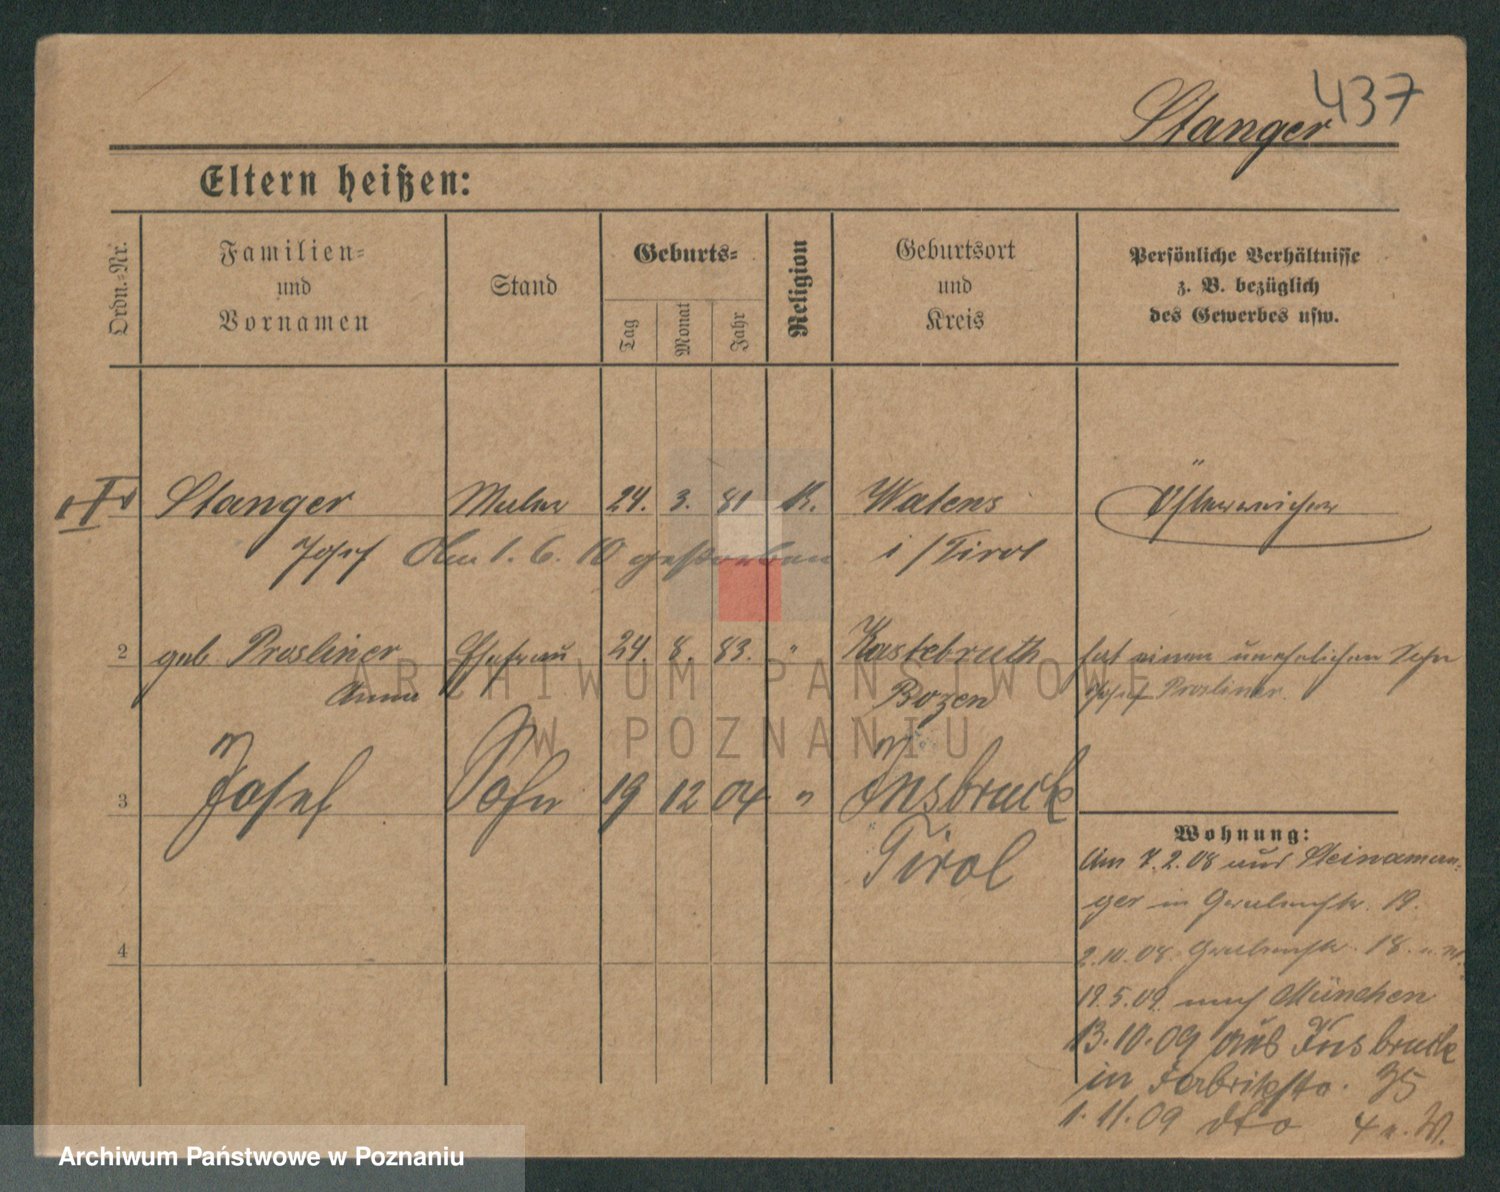 437
Stanger
Eltern heißen:
Ordn.-Nr.
Familien- und Vornamen
Stand
Geburts-
Tag
Monat
Jahr
Religion
Geburtsort und Kreis
Persönliche Verhältnisse
z. B. bezüglich
des Gewerbes usw.
Stanger Maler 24. 3. 81 K. Watens Österreicher
Josef Am 1. 6. 10 gestorben. i/Tirol
2 geb Prosliner Ehefrau 24. 8. 83. " Kastebruth hat einen unehelichen Sohn
Anna Bozen Josef Prosliner.
3 Josef Sohn 19 12 04 " Insbruck
Tirol
4
Wohnung:
Am 7.2.08 aus Steinaman-
ger in Grabenstr. 19.
2.10.08. Grabenstr. 18.
19.5.09. nach München
13.10.09 aus Insbruck
in Fabrikstr. 35
1.11.09 dto 4 n. W.
ARCHIWUM PAŃSTWOWE
W POZNANIU
Archiwum Państwowe w Poznaniu